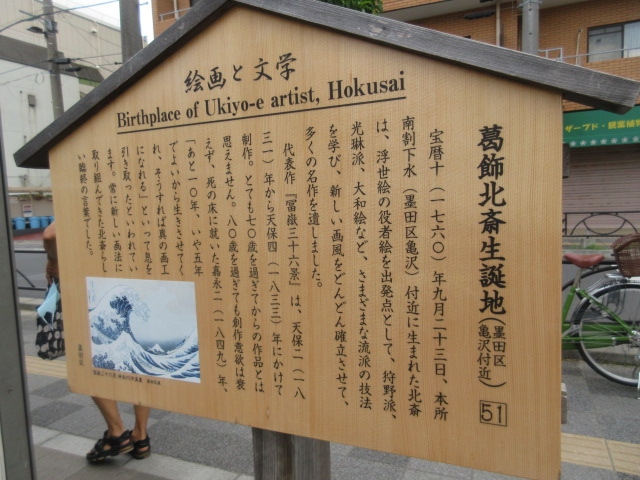 絵画と文学
Birthplace of Ukiyo-e artist, Hokusai
葛飾北斎生誕地(墨田区亀沢付近) 51
宝暦十(一七六〇)年九月二十三日、本所
南割下水(墨田区亀沢)付近に生まれた北斎
は、浮世絵の役者絵を出発点として、狩野派、
光琳派、大和絵など、さまざまな流派の技法
を学び、新しい画風をどんどん確立させて、
多くの名作を遺しました。
代表作『冨嶽三十六景』は、天保二(一八
三一)年から天保四(一八三三)年にかけて
制作。とても七〇歳を過ぎてからの作品とは
思えません。八〇歳を過ぎても創作意欲は衰
えず、死の床に就いた嘉永二(一八四九)年、
「あと一〇年、いや五年
でよいから生きさせてく
れ、そうすれば真の画工
になれる」といって息を
引き取ったといわれてい
ます。常に新しい画法に
取り組んできた北斎らし
い臨終の言葉でした。
墨田区
ザーブド・観葉植物